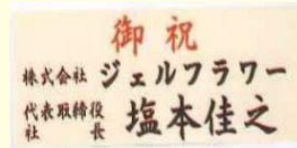 御祝
株式会社 ジェルフラワー
代表取締役
社長 塩本佳之